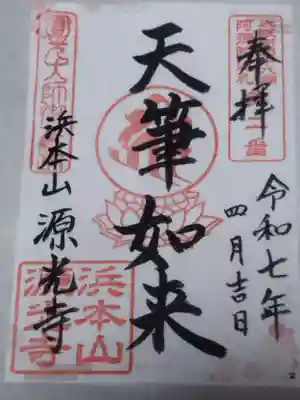 奉拝
令和七年
四月吉日
天筆如来
浜本山 源光寺
浜本山
源光寺